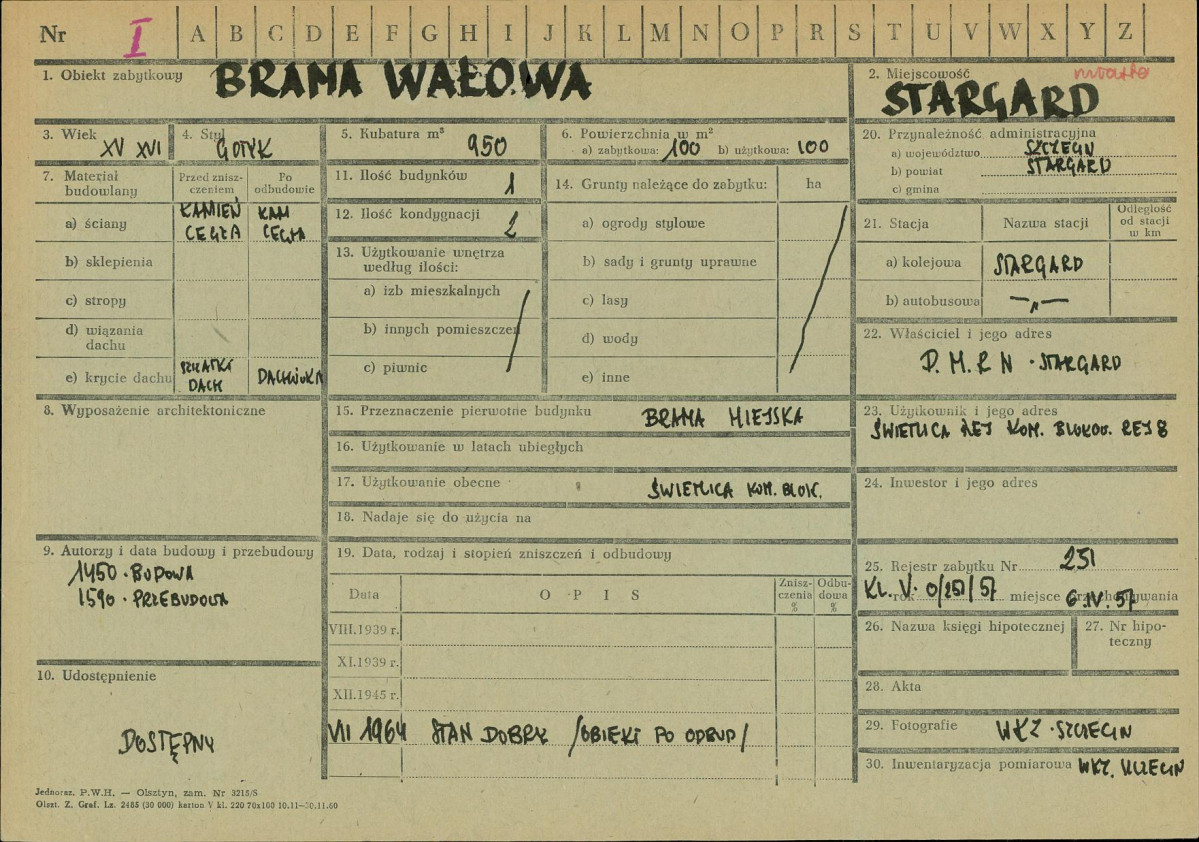 Nr I A B C D E F G H I J K L M N O P R S T U V W X Y Z
1. Obiekt zabytkowy BRAMA WAŁOWA
2. Miejscowość miasto
STARGARD
3. Wiek
XV XVI
4. Styl
GOTYK
5. Kubatura m³
950
6. Powierzchnia w m²
a) zabytkowa: 100 b) użytkowa: 100
7. Materiał budowlany
Przed znisz-
czeniem
Po
odbudowie
a) ściany
KAMIEŃ
CEGŁA
KAM
CEGŁA
b) sklepienia
c) stropy
d) wiązania
dachu
e) krycie dachu
DACH
DACHÓWKA
8. Wyposażenie architektoniczne
9. Autorzy i data budowy i przebudowy
1450 · BUDOWA
1590 · PRZEBUDOWA
10. Udostępnienie
DOSTĘPNY
11. Ilość budynków
1
12. Ilość kondygnacji
2
13. Użytkowanie wnętrza
według ilości:
a) izb mieszkalnych
b) innych pomieszczeń
c) piwnic
14. Grunty należące do zabytku: ha
a) ogrody stylowe
b) sady i grunty uprawne
c) lasy
d) wody
e) inne
15. Przeznaczenie pierwotne budynku BRAMA MIEJSKA
16. Użytkowanie w latach ubiegłych
17. Użytkowanie obecne ŚWIETLICA KOM. BLOK.
18. Nadaje się do użycia na
19. Data, rodzaj i stopień zniszczeń i odbudowy
Data O P I S
Znisz-
czenia
%
Odbu-
dowa
%
VIII.1939 r.
XI.1939 r.
XII.1945 r.
VII 1964 STAN DOBRY /OBIEKT PO ODBUD/
20. Przynależność administracyjna
a) województwo SZCZECIN
b) powiat STARGARD
c) gmina
21. Stacja Nazwa stacji
Odległość
od stacji
w km
a) kolejowa STARGARD
b) autobusowa —„—
22. Właściciel i jego adres
P.M.R N · STARGARD
23. Użytkownik i jego adres
ŚWIETLICA REJ KOM. BLOKOW. REJ 8
24. Inwestor i jego adres
25. Rejestr zabytku Nr 251
KL. V. 0/251/57 rok miejsce przechowywania 6.IV.57
26. Nazwa księgi hipotecznej
27. Nr hipo-
teczny
28. Akta
29. Fotografie WKZ · SZCZECIN
30. Inwentaryzacja pomiarowa WKZ. SZCZECIN
Jednoraz. P.W.H. — Olsztyn, zam. Nr 3215/S
Olszt. Z. Graf. Lz. 2485 (30 000) karton V kl. 220 70x100 10.11—30.11.60